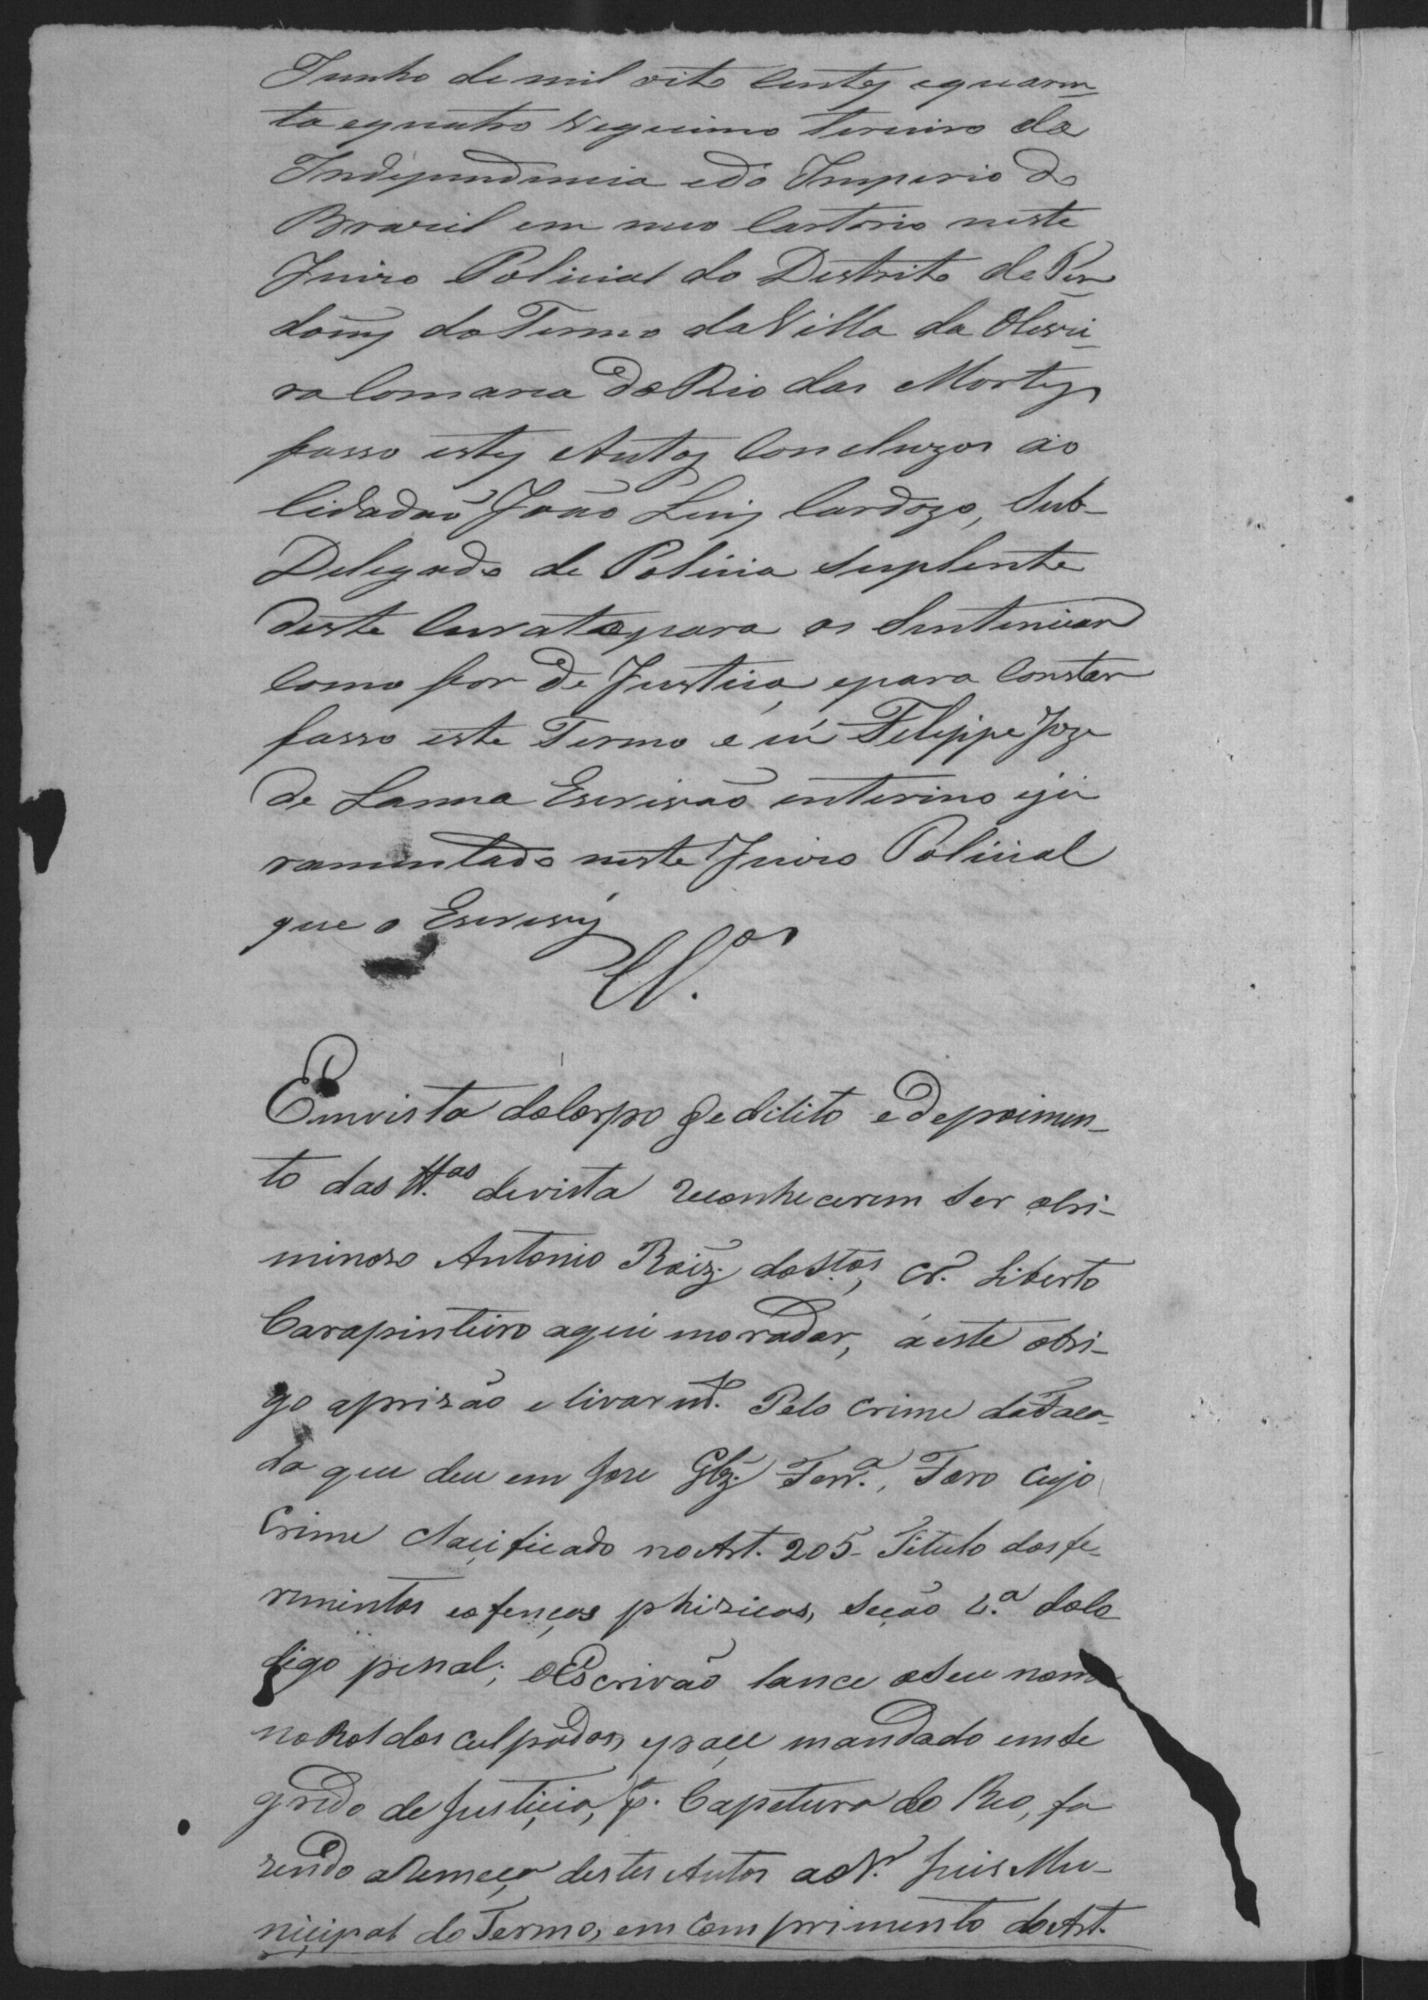 Junho de mil oito centos equaren_
ta equatro Vegecimo terceiro da
Independencia edo Imperio do
Brazil em meo Cartorio neste
Juizo Policial do Destrito de Per
doins do Termo da Villa da Olivei_
ra Comarca do Rio das Mortes
fasso estes Autos Concluzos ao
Cidadaõ Joaõ Luis Cardozo, Sub-
Delegado de Policia Suplente
deste Curato epara os Sentenciar
como for de Justica, epara Constar
fasso este Termo e eu Felippe Joze
de Lanna Escrivaõ enterino eju
ramentado neste Juizo Policial
que o Escrevy
Cl.os
Emvista do Corpo de dilito e depoimen_
to das tt.as devista reconhecerem ser ocri-
minozo Antonio Roiz' dos S.tos, cr. Liberto
Carapinteiro aqui morador, a este obri-
go aprizão e livram.to Pelo crime da Faca_
da que deu em Jose Glz' Ferr.a, Foro cujo
Crime claçificado no Art. 205- Titulo dos fe_
rimentos eofenças phizicas, Seção 4.a do Co
digo penal; o Escrivão lance o Seu nome
no Rol dos culpados, epaçe mandado em se
gredo de Justiçia, p.a Capetura do Reo, fa
zendo a Remeça destes Autos ao Sr. Juis Mu-
niçipal do Termo, em Comprimento do Art.